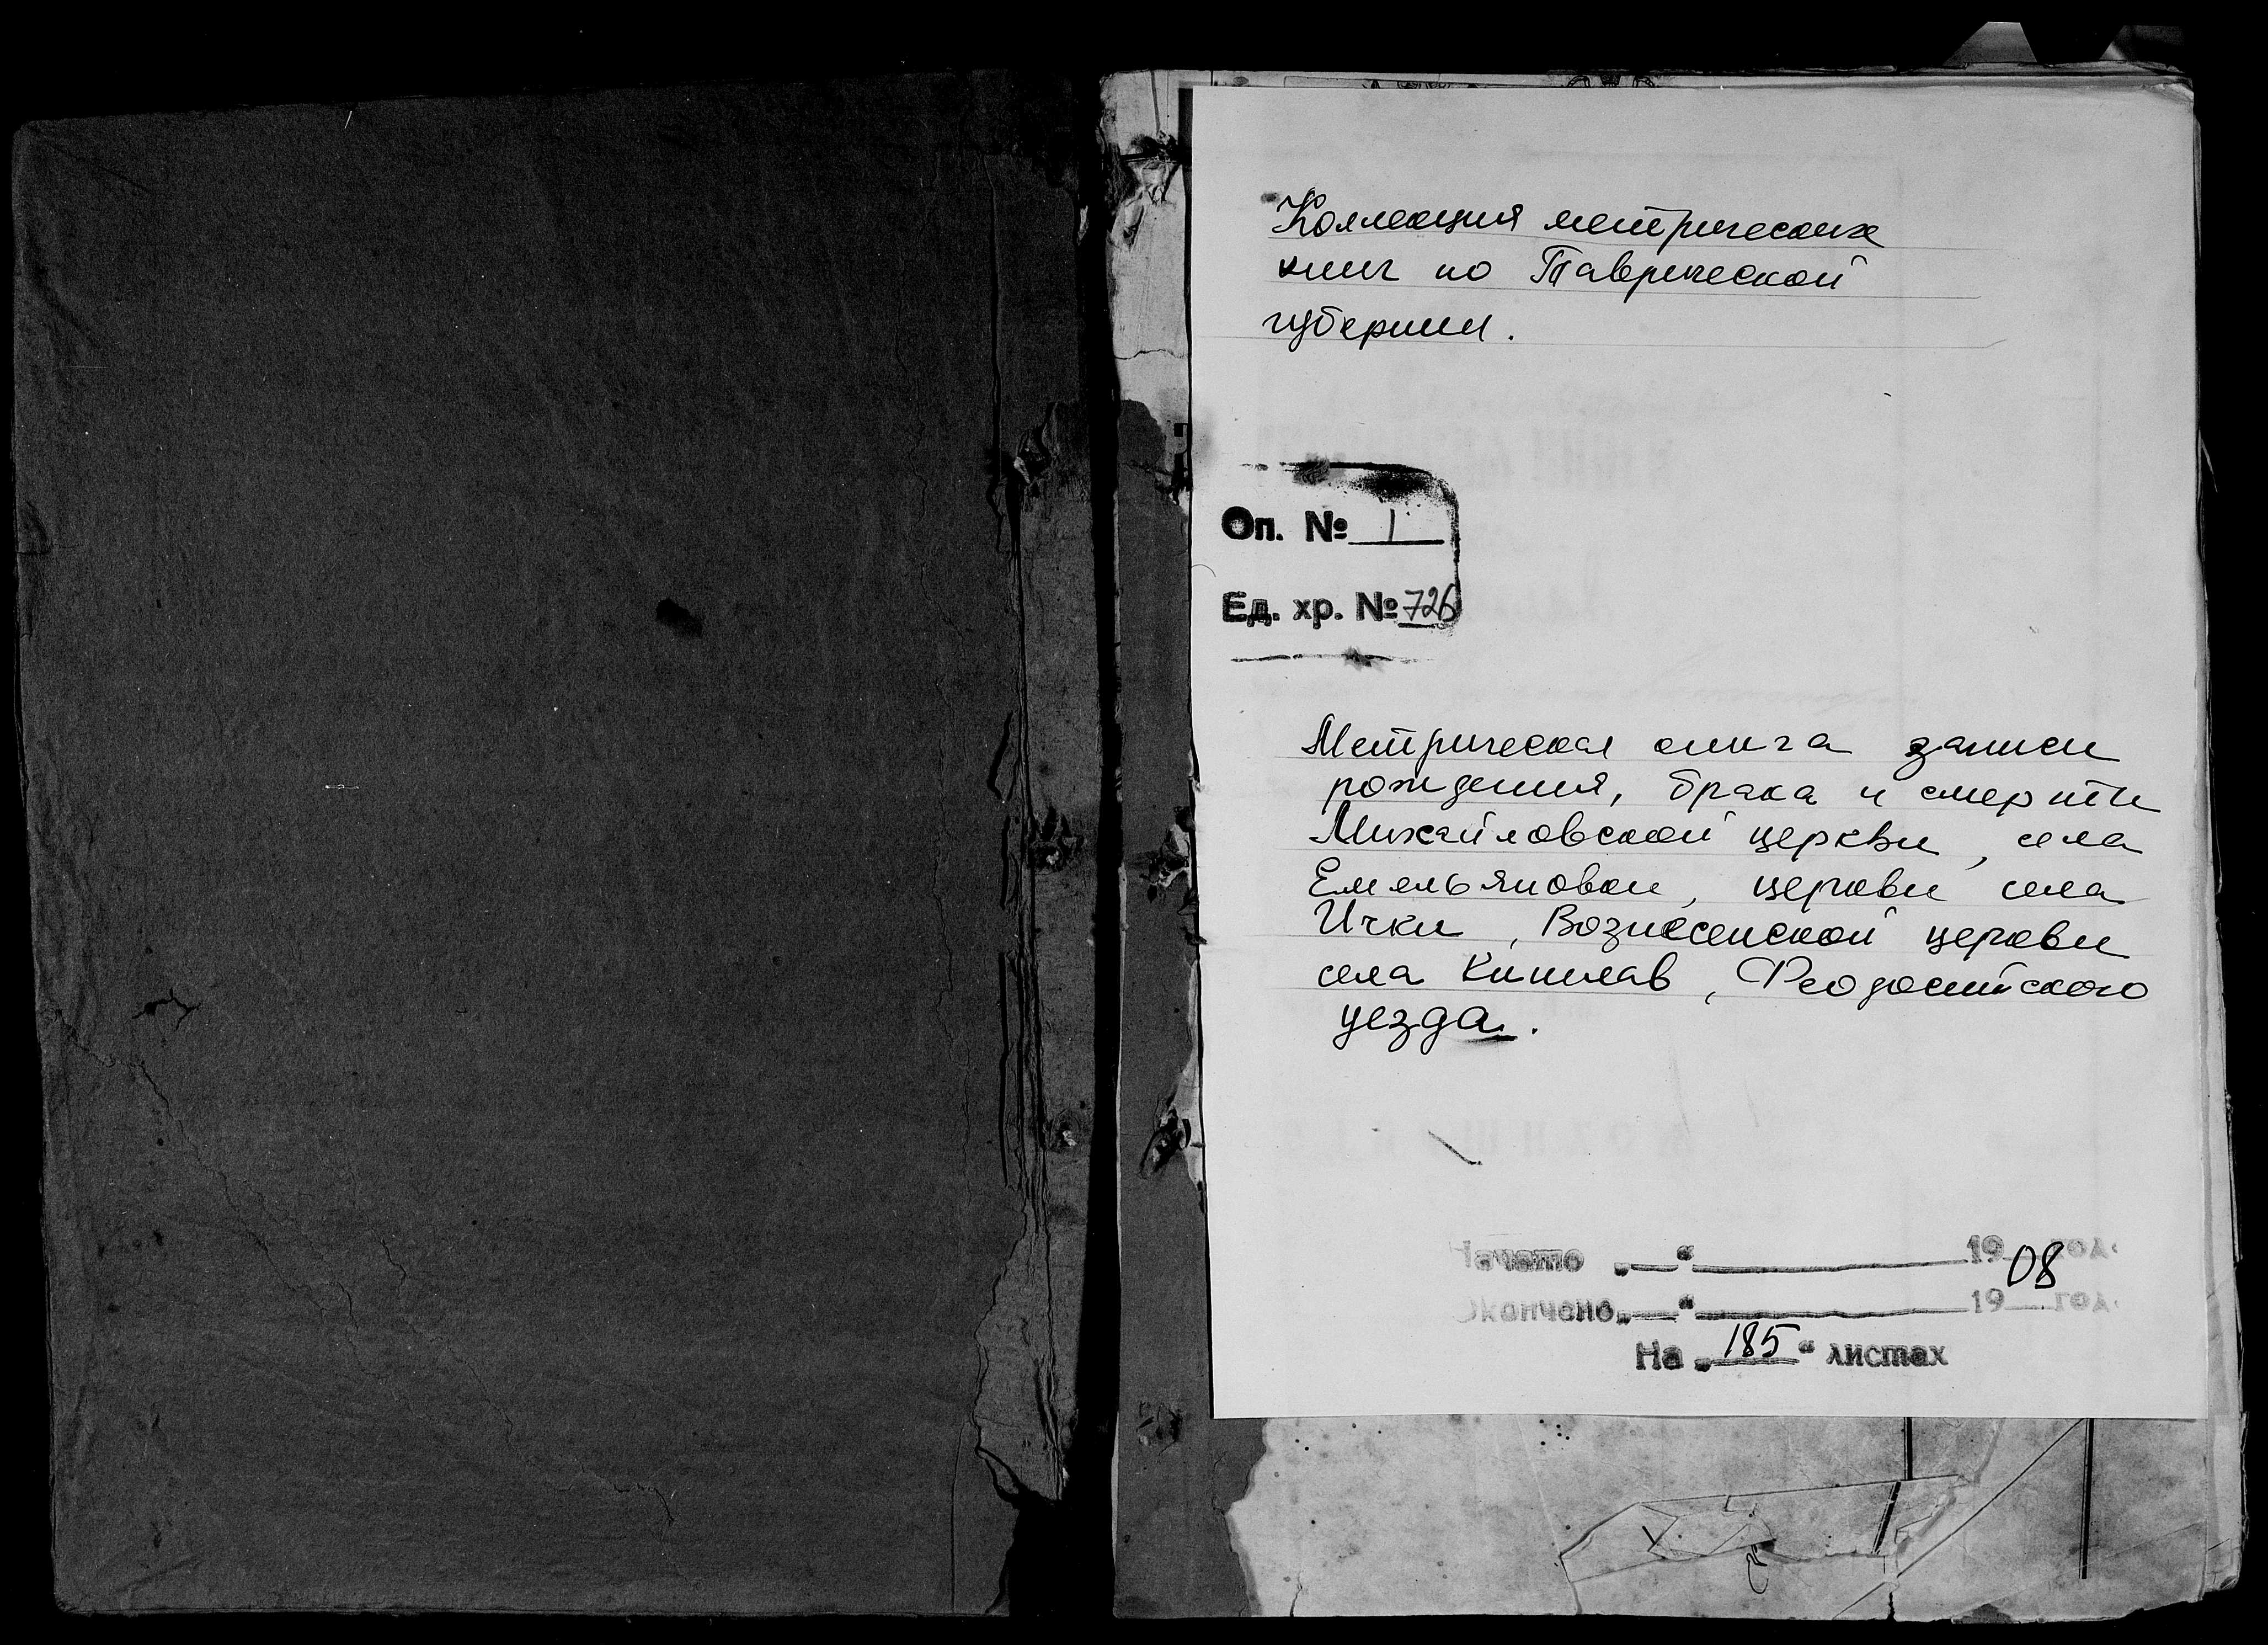 Коллекция метрических
книг по Таврической
губернии.
Оп. № 1
Ед. хр. № 726
Метрическая книга записи
рождения, брака и смерти
Михайловской церкви, села
Емельяновки, церкви села
Ички, Вознесенской церкви
села Кишлав, Феодосийского
уезда.
Начато „ “ 1908 год
Окончено „ “ 19 год
На „185“ листах